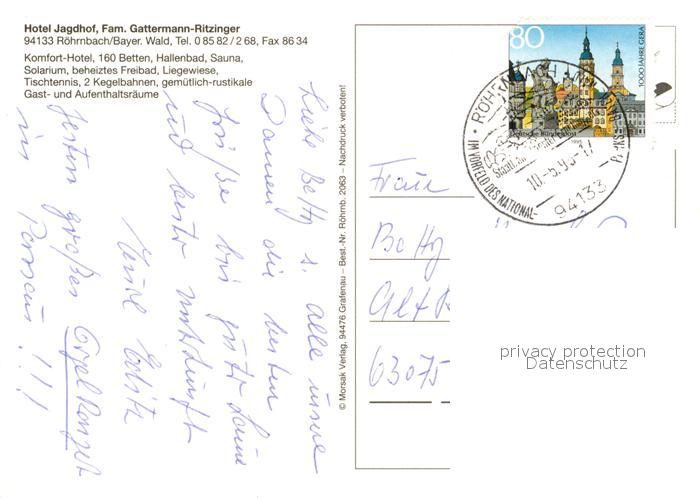 Hotel Jagdhof, Fam. Gattermann-Ritzinger
94133 Röhrnbach/Bayer. Wald, Tel. 0 85 82 / 2 68, Fax 86 34
Komfort-Hotel, 160 Betten, Hallenbad, Sauna,
Solarium, beheiztes Freibad, Liegewiese,
Tischtennis, 2 Kegelbahnen, gemütlich-rustikale
Gast- und Aufenthaltsräume
Liebe Betty u. alle unsre
Damen die besten
Grüße bei guter Laune
und bester Unterkunft
Edith
Gestern großes Orgelkonzert
in Passau !!!
© Morsak Verlag, 94476 Grafenau – Best.-Nr. Röhrnb. 2063 – Nachdruck verboten!
80
1000 JAHRE GERA
Deutsche Bundespost
RÖHRN
10.-6.95-17
IM VORFELD DES NATIONAL-
94133
Frau
Betty
63075
privacy protection
Datenschutz